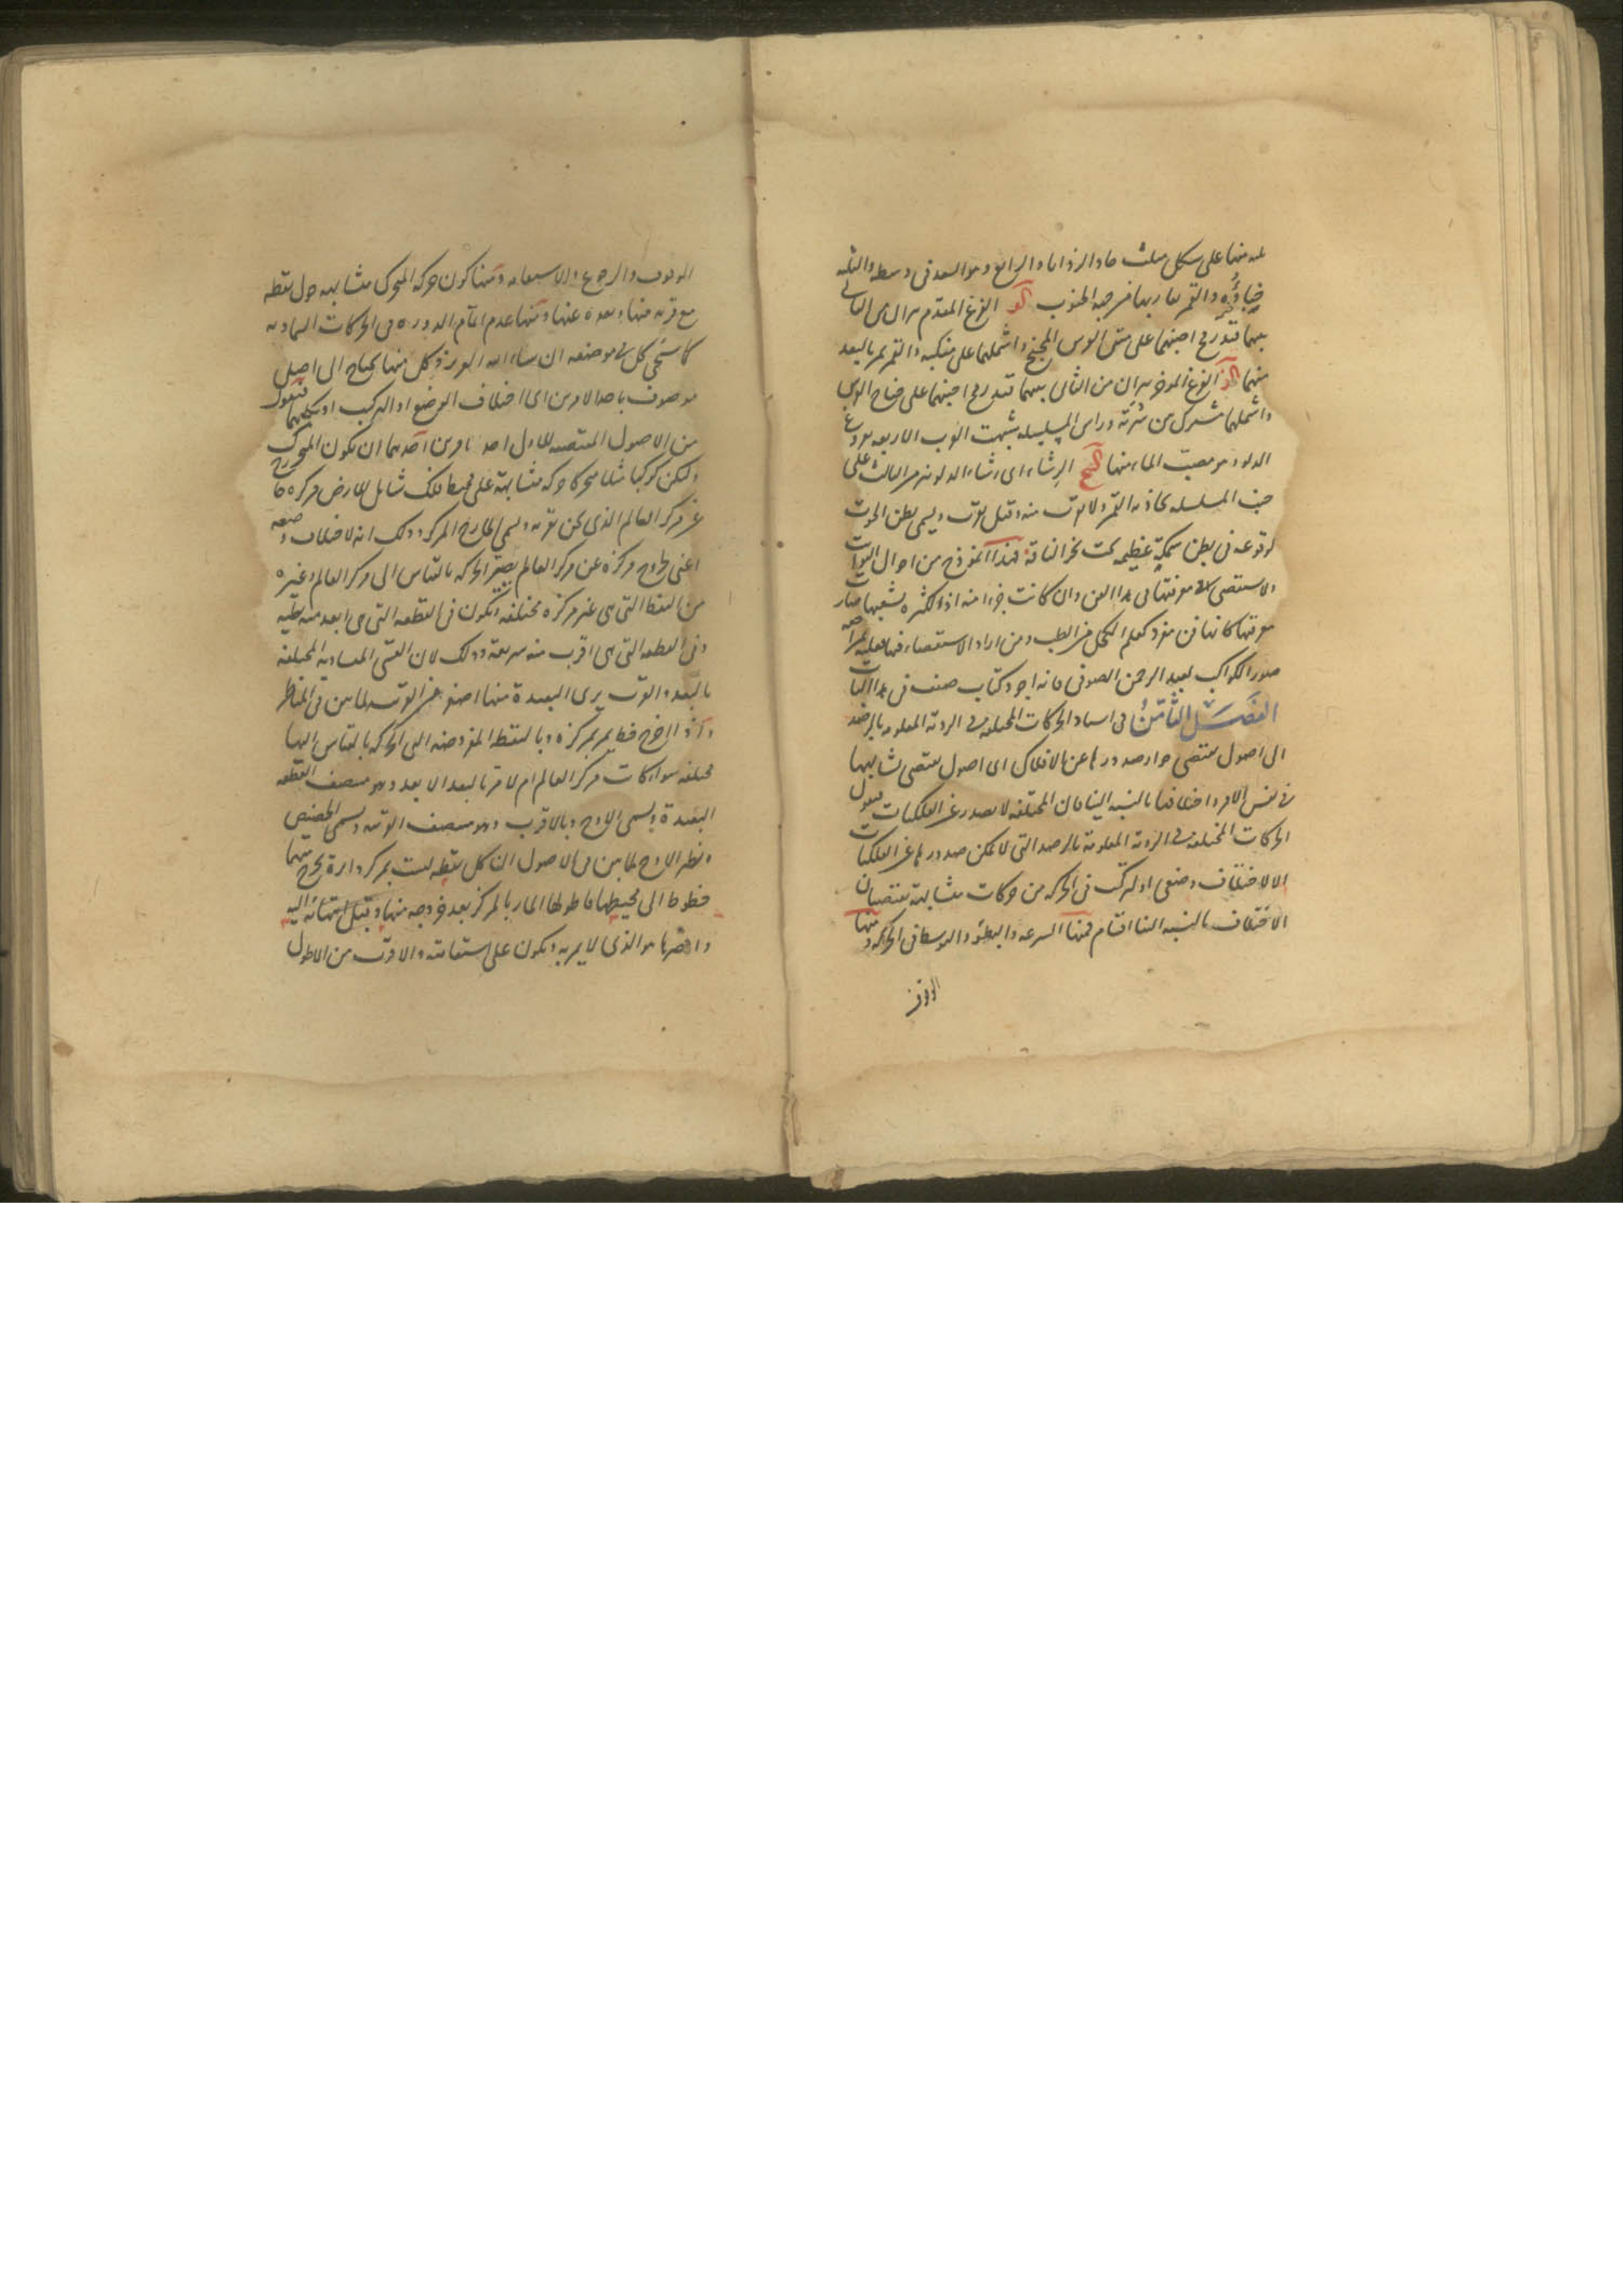 ثلثه منها على شكل مثلث حاد الزوايا والرابع وهو السعد فى وسطه والثلثة
خباؤه والقمر يقاربها من جهة الجنوب كو الفرغ المقدم نيران من الثانى
بينهما قدر رمح اجنبهما على متن الفرس المجنح واشملهما على منكبه والقمر يمر بالبعد
منهما كز الفرغ المؤخر نيران من الثانى بينهما قدر رمح اجنبهما على جناح الفرس
واشملهما مشترك بين سرته وراس المسلسله شبهت العرب الاربعة بفروغ
الدلو وهو مصب الماء منها كح الرشاء اى رشاء الدلو نير من الثالث على
جنب المسلسله يحاذيه القمر ولا يقرب منه وقيل يقرب ويسمى بطن الحوت
لوقوعه فى بطن سمكة عظيمة تحت نحر الناقة فهذا انموذج من احوال الثوابت
ولا يستقصى معرفتها فى هذا الفن وان كانت جزءا منه اذ لكثرة شعبها صارت
معرفتها كانها فن مفرد كعلم الكحل من الطب ومن اراد الاستقصاء فيها فعليه بمراجعة
صور الكواكب لعبد الرحمن الصوفى فانه اجود كتاب صنف فى هذا الباب
الفصل الثامن فى اسناد الحركات المختلفة فى الرؤية المعلومة بالرصد
الى اصول تقتضى جواز صدورها عن الافلاك اى اصول تقتضى تشابهها
فى نفس الامر واختلافها بالنسبة الينا فان المختلفة لا تصدر عن الفلكيات فنقول
الحركات المختلفة فى الرؤية المعلومة بالرصد التى لا يمكن صدورها عن الفلكيات
الا لاختلاف وضعى او لتركب فى الحركة من حركات متشابهة تقتضيان
الاختلاف بالنسبة الينا اقسام فمنها السرعة والبطؤ والتوسط فى الحركة ومنها
الوقوف
الوقوف والرجوع والاستقامة ومنها كون حركة المتحرك متشابهة حول نقطة
مع قربه منها وبعده عنها ومنها عدم اتمام الدورة فى الحركات السماوية
كما سيجى كل فى موضعه ان شاء الله العزيز وكل منها يحتاج الى اصل
موصوف باحد الامرين اى اختلاف الوضع او التركيب او كليهما فنقول
من الاصول المقتضية للاول احد امرين احدهما ان يكون المتحرك
وليكن كوكبا مثلا متحركا حركة متشابهة على محيط فلك شامل للارض مركزه خارج
عن مركز العالم الذى نحن بقربه ويسمى الخارج المركز وذلك انه لاختلاف وضعه
اعنى خروج مركزه عن مركز العالم يصير الحركة بالقياس الى مركز العالم وغيره
من النقط التى هى غير مركزه مختلفة وتكون فى القطعة التى هى ابعد منه بطية
وفى القطعة التى هى اقرب منه سريعة وذلك لان القسى المتساوية المختلفة
بالبعد والقرب يرى البعيدة منها اصغر من القريبة لما بين فى المناظر
واذا اخرج خط يمر بمركزه وبالنقطة المفروضة التى الحركة بالقياس اليها
مختلفة سواء كانت مركز العالم ام لا مر بالبعد الابعد وهو منتصف القطعة
البعيدة ويسمى الاوج وبالاقرب وهو منتصف القريبة ويسمى الحضيض
ونظير الاوج لما بين فى الاصول ان كل نقطة ليست بمركز دائرة يخرج منها
خطوط الى محيطها فاطولها المار بالمركز بعد خروجه منها وقبل انتهائه اليه
واقصرها هو الذى لا يمر به ويكون على استقامته والاقرب من الاطول